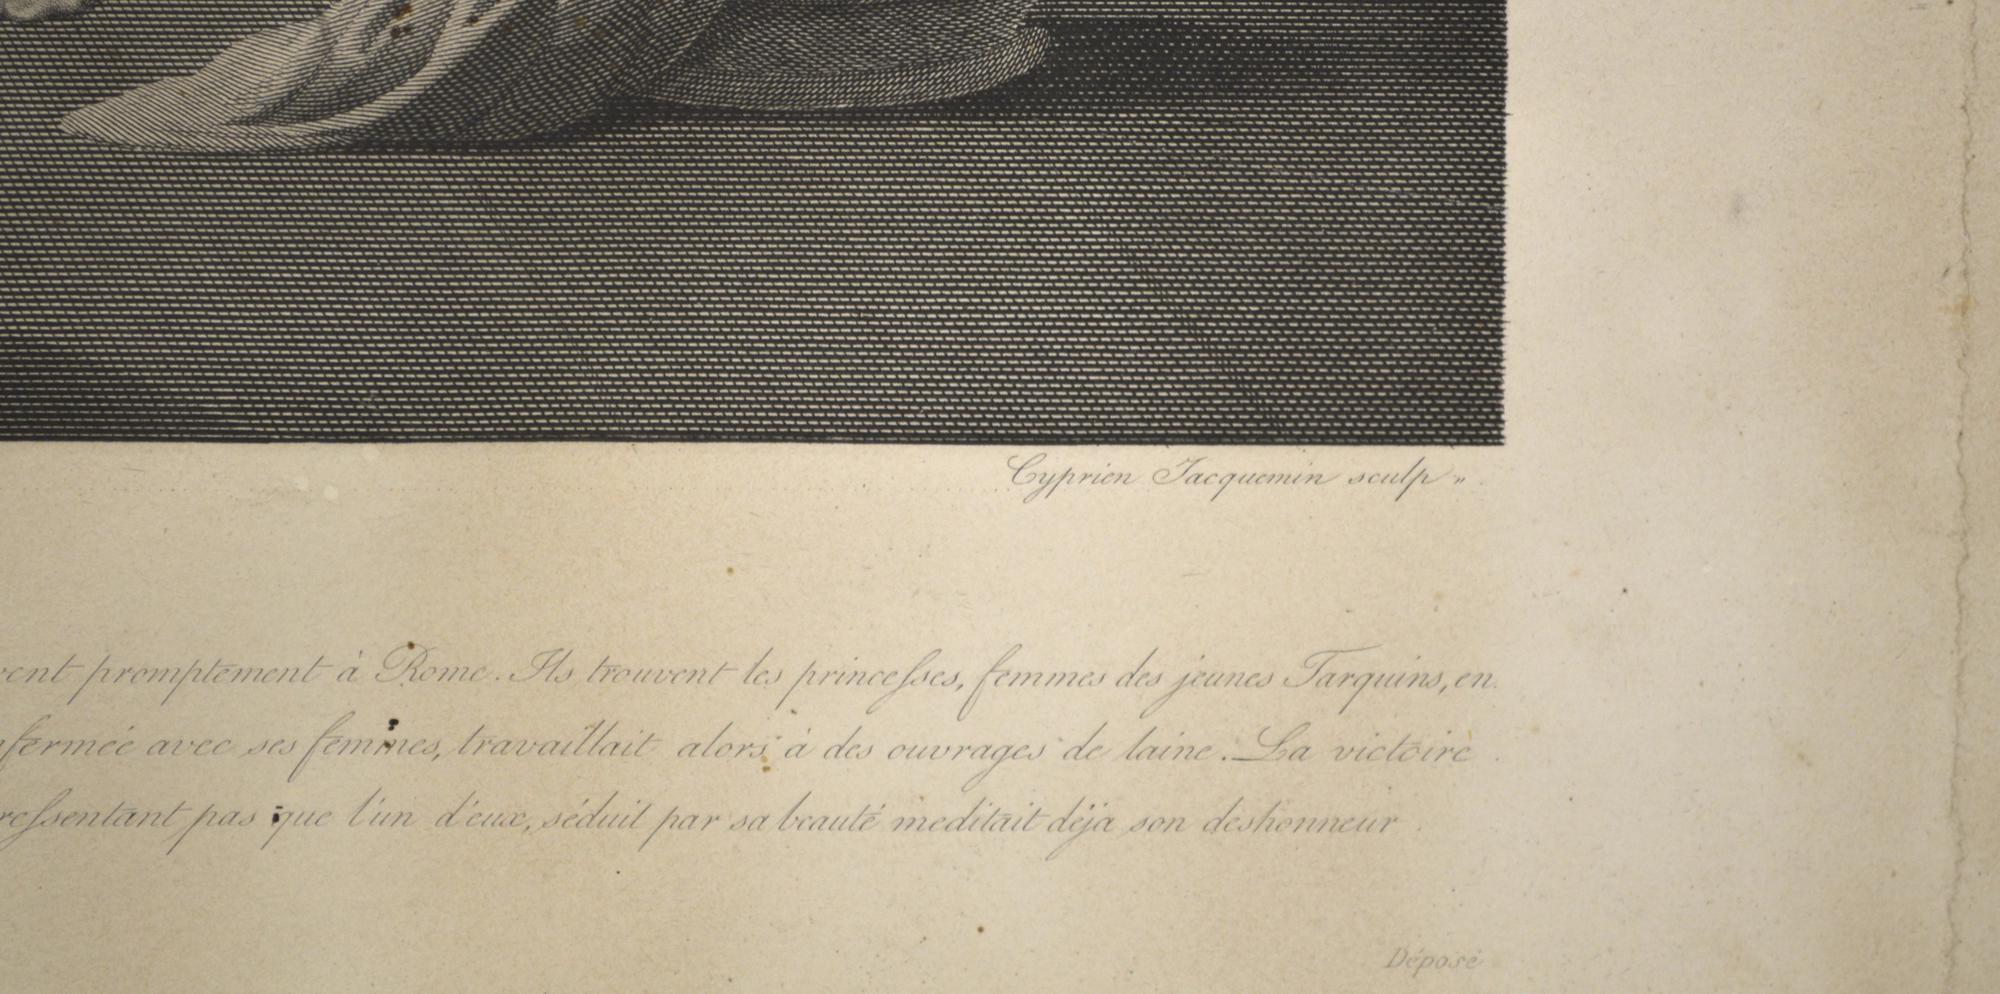 Cyprien Jacquemin sculp "
vent promptement à Rome. Ils trouvent les princesses, femmes des jeunes Tarquins, en
fermée avec ses femmes, travaillait alors à des ouvrages de laine. La victoire
ressentant pas que l'un d'eux, séduit par sa beauté meditait déja son deshonneur
Déposé